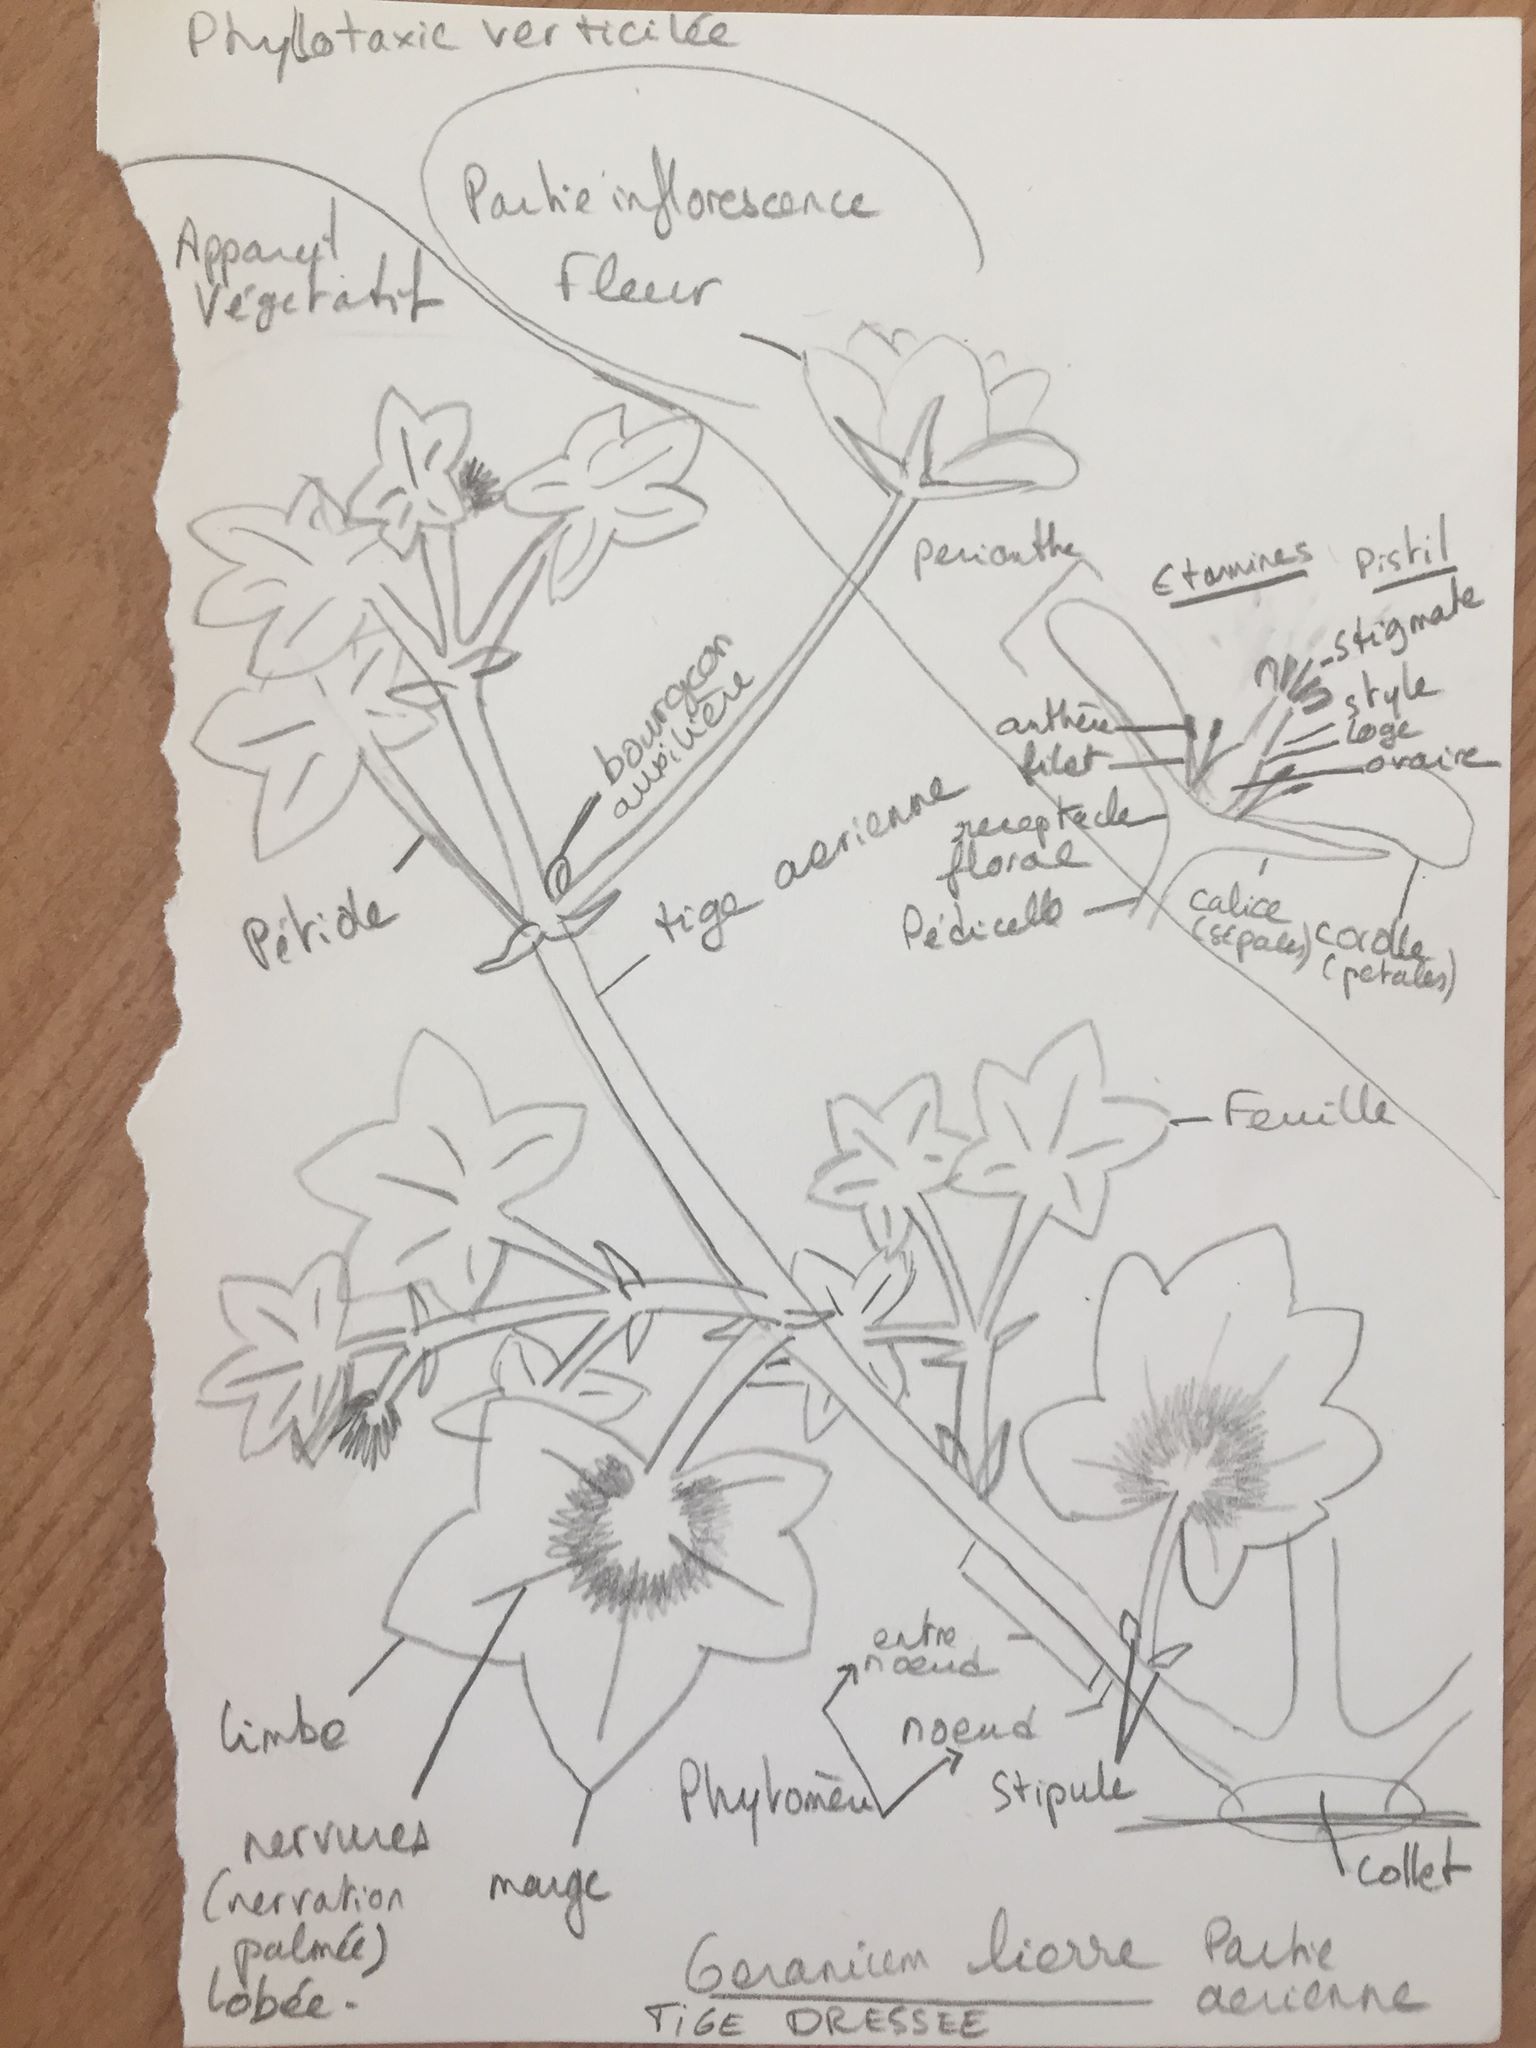 Phyllotaxie verticilée
Partie inflorescence
Fleur
Appareil
Végetatif
perianthe
Etamines
Pistil
stigmate
style
loge
ovaire
anthère
filet
receptacle
floral
Pédicelle
calice
(sépales)
corolle
(petales)
bourgeon
auxilière
tige aerienne
Pétiole
Feuille
entre
noeud
noeud
Phytomèr
Stipule
Collet
limbe
nervures
(nervation
palmée)
lobée.
marge
Geranium lierre
Partie
aerienne
TIGE DRESSEE